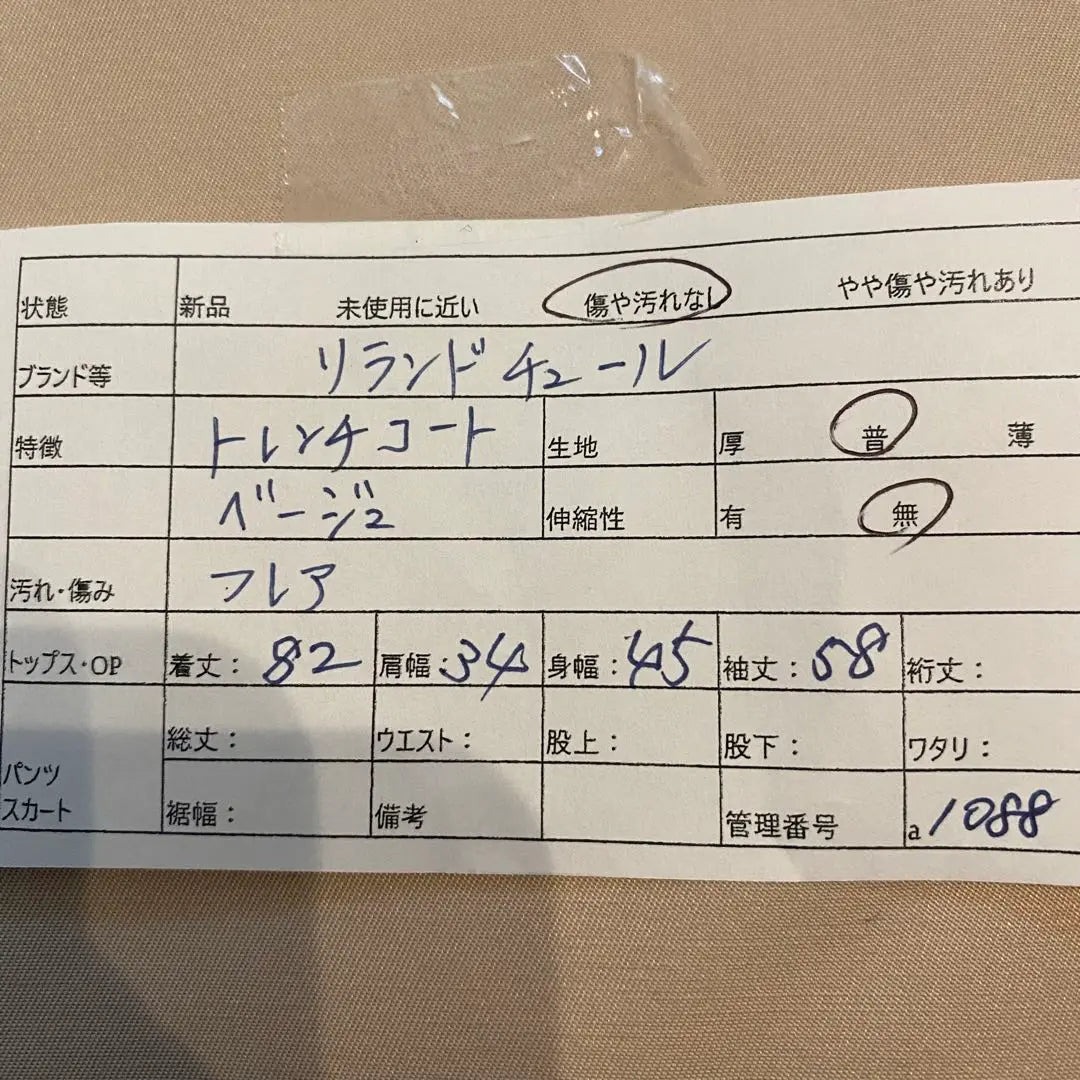 状態 新品 未使用に近い 傷や汚れなし やや傷や汚れあり
ブランド等 リランドチュール
特徴 トレンチコート 生地 厚 普 薄
ベージュ 伸縮性 有 無
汚れ・傷み フレア
トップス・OP 着丈：82 肩幅：34 身幅：45 袖丈：58 裄丈：
総丈： ウエスト： 股上： 股下： ワタリ：
パンツ
スカート 裾幅： 備考 管理番号 a1088